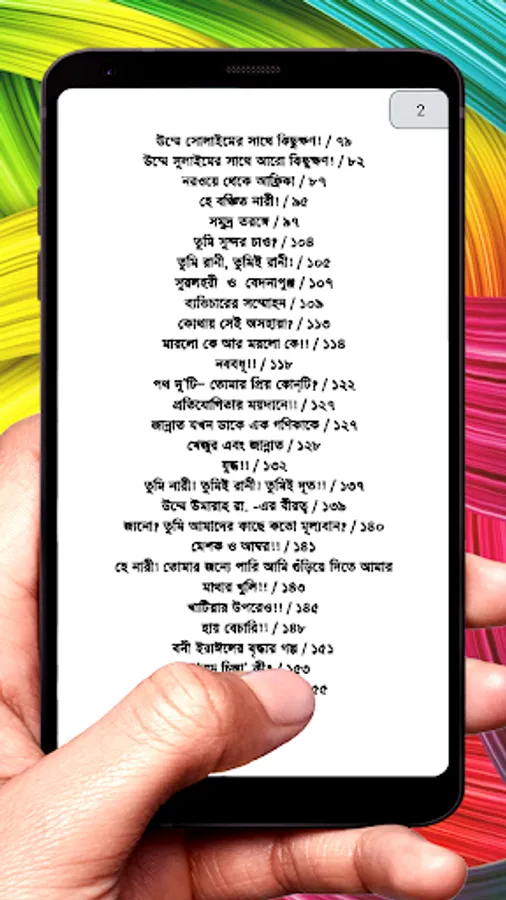 2
উম্মে সোলাইমের সাথে কিছুক্ষণ! / ৭৯
উম্মে সুলাইমের সাথে আরো কিছুক্ষণ! / ৮২
নরওয়ে থেকে আফ্রিকা / ৮৭
হে বঞ্চিত নারী! / ৯৫
সমুদ্র তরঙ্গে / ৯৭
তুমি সুন্দর চাও? / ১০৪
তুমি রাণী, তুমিই রাণী! / ১০৫
সুরলহরী ও বেদনাপুঞ্জ / ১০৭
ব্যভিচারের সম্মোহন / ১০৯
কোথায় সেই অসহায়া? / ১১৩
মারলো কে আর মরলো কে!! / ১১৪
নববধূ!! / ১১৮
পথ দু'টি– তোমার প্রিয় কোনটি? / ১২২
প্রতিযোগিতার ময়দানে!! / ১২৭
জান্নাত যখন ডাকে এক গণিকাকে / ১২৭
খেজুর এবং জান্নাত / ১২৮
যুদ্ধ!! / ১৩২
তুমি নারী! তুমিই রাণী! তুমিই দূত!! / ১৩৭
উম্মে উমারাহ রা. -এর বীরত্ব / ১৩৯
জানো? তুমি আমাদের কাছে কতো মূল্যবান? / ১৪০
মেশক ও আম্বর!! / ১৪১
হে নারী! তোমার জন্যে পারি আমি গুঁড়িয়ে দিতে আমার
মাথার খুলি!! / ১৪৩
খাটিয়ার উপরেও!! / ১৪৫
হায় বেচারি!! / ১৪৮
বনী ইরাঈলের বৃদ্ধার গল্প / ১৫১
চিন্তা' কী? / ১৫৩
৫৫